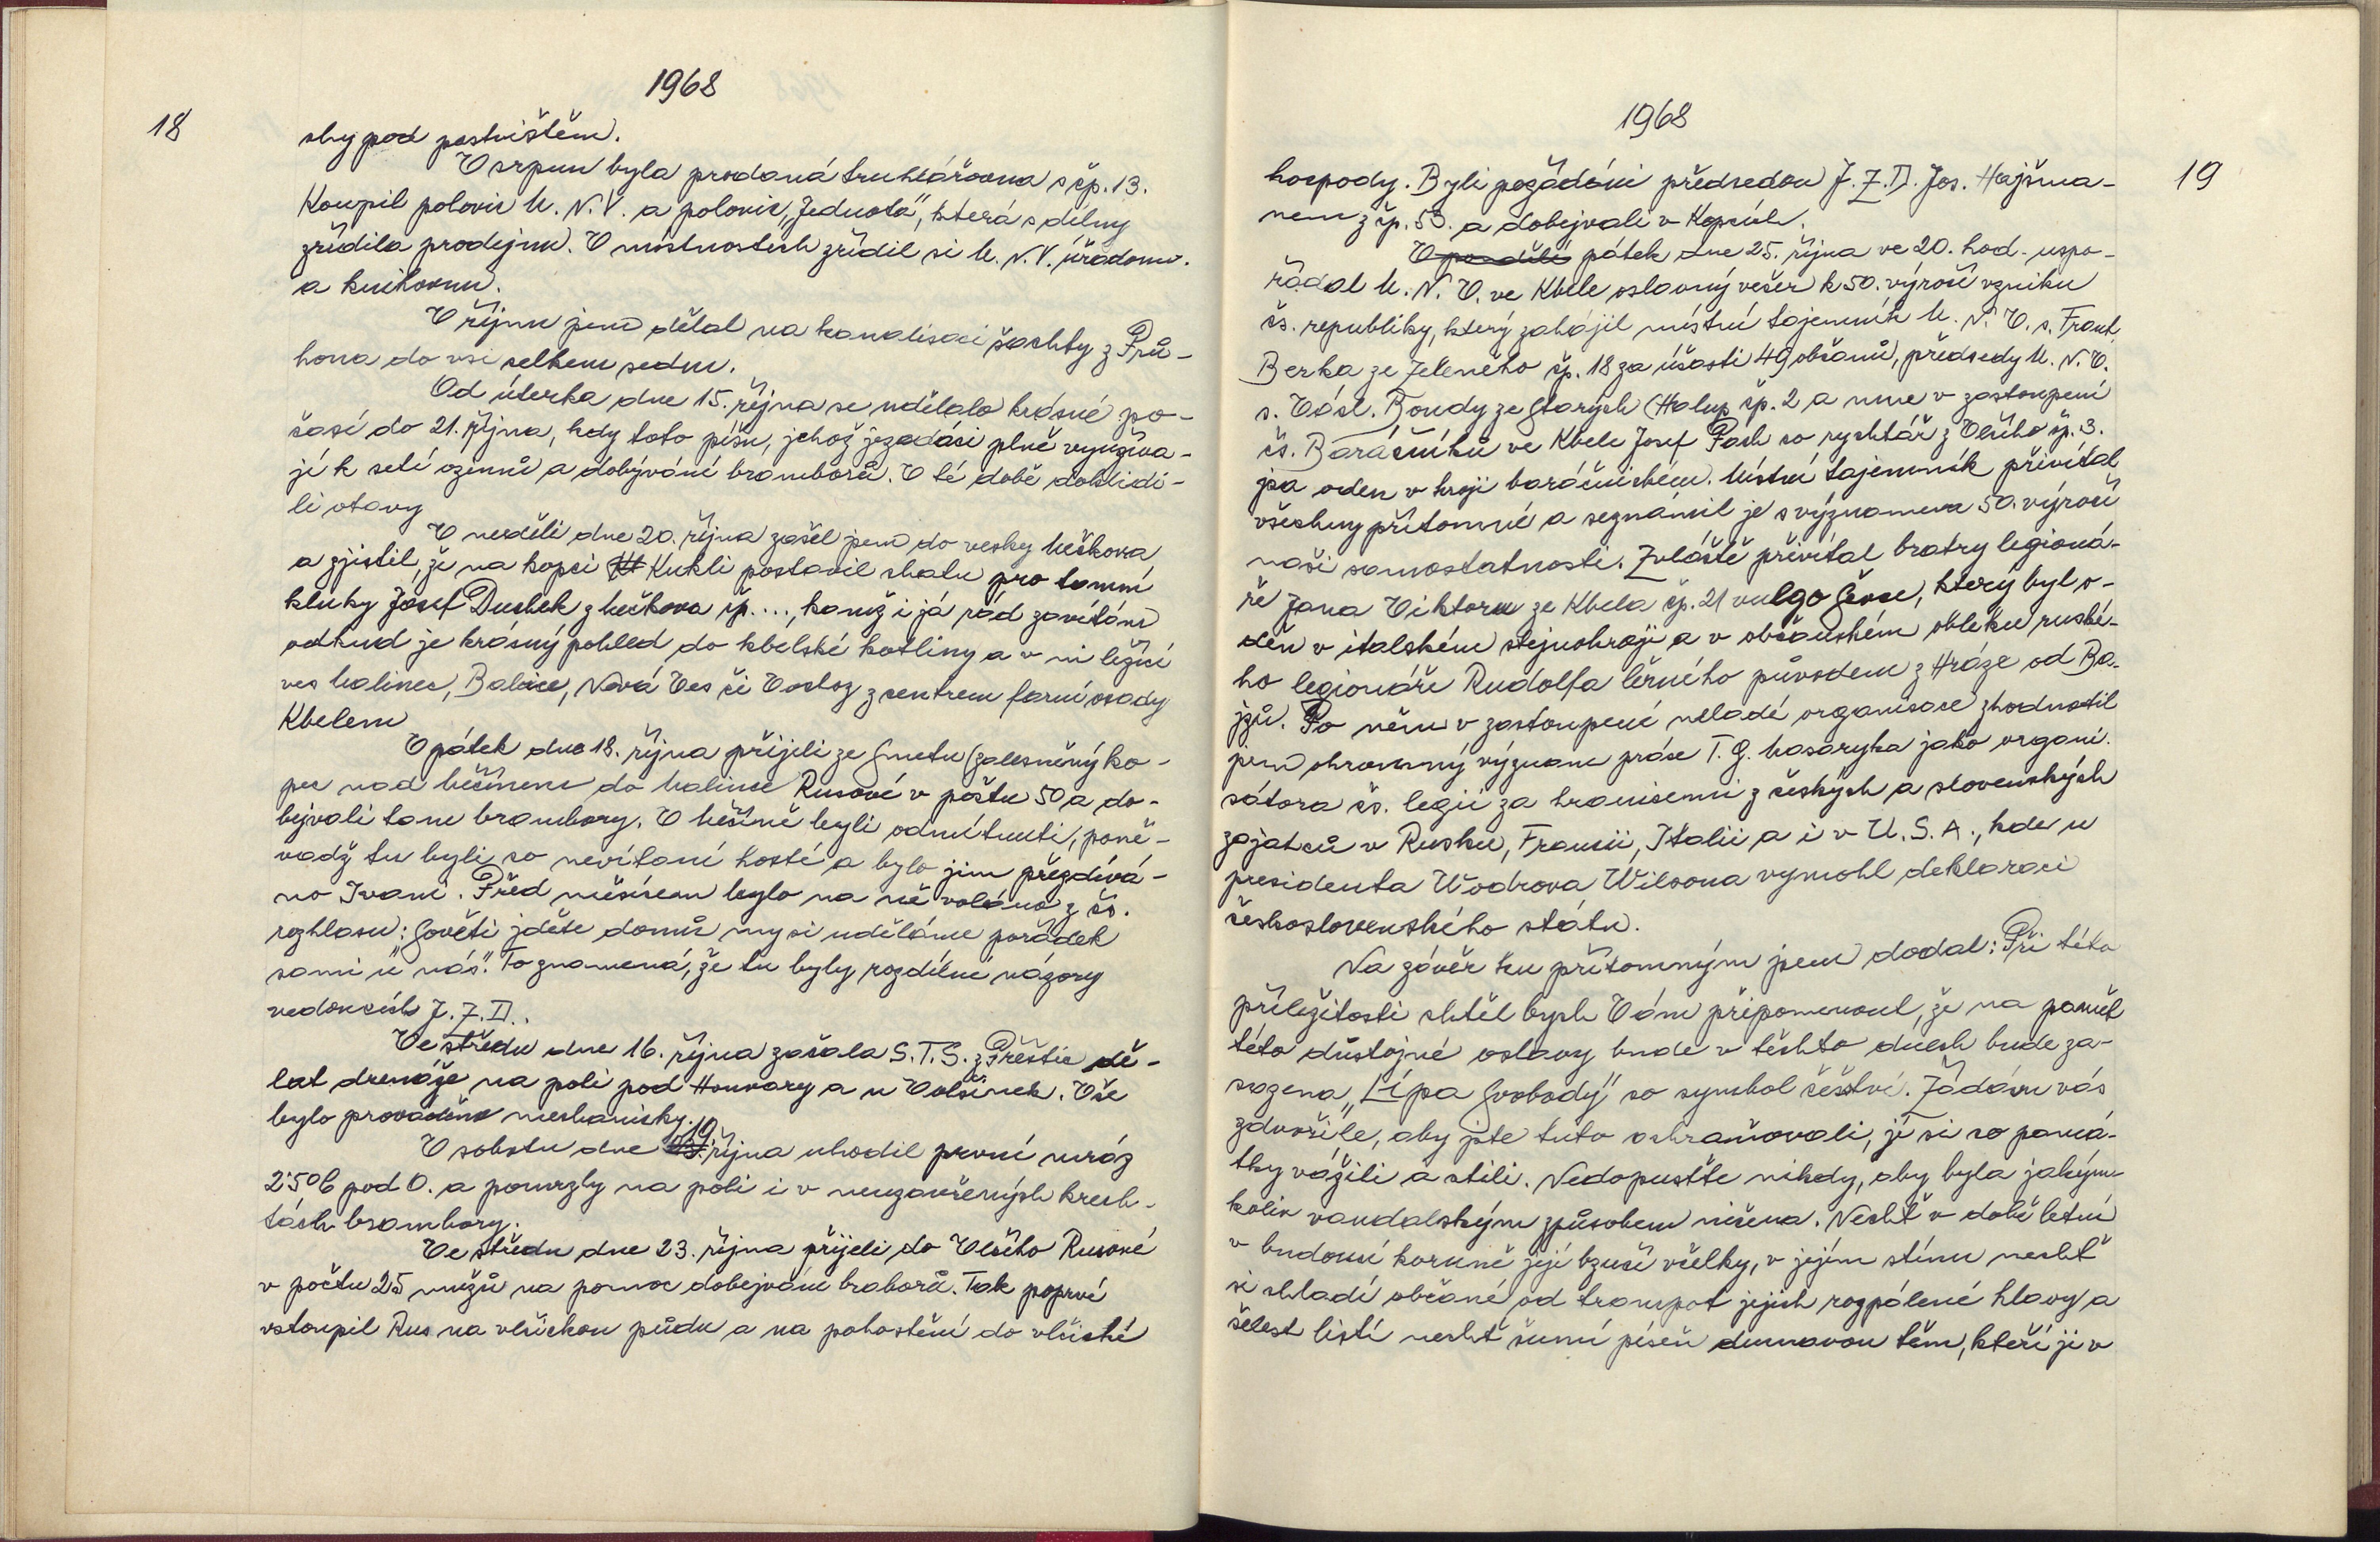 1968
18
chy pod pastvištěm.
V srpnu byla prodaná truhlářovna s čp. 13.
Koupil polovic M. N. V. a polovic „Jednota", která s dílny
zřídila prodejnu. V místnostech zřídil si M. N. V. úřadovnu.
a knihovnu.
V říjnu jsem dělal na kanalisaci šachty z Prů-
hona do vsi celkem sedm.
Od úterka dne 15. října se udělalo krásné po-
časí do 21. října, kdy toto píšu, jehož jezedáci plně využíva-
jí k setí ozimů a dobývání bramborů. V té době doklidi-
li otavy
V neděli dne 20. října zašel jsem do vesky Mečkova
a zjistil, že na kopci Kukli postavil chatu pro tamní
kluky Josef Duchek z Mečkova čp. ..., kamž i já rád zavítám
odkud je krásný pohled do kbelské kotliny a v ni ležící
ves Malinec, Balkce, Nová Ves či Vostoz z centrem farní osady
Kbelem
V pátek dne 18. října přijeli ze Smetu (zalesněný ko-
pec nad Měčínem do Malince Rusové v počtu 50 a do-
bejvali tam brambory. V Měčíně byli odmítnuti, poně-
vadž tu byli co nevítaní hosté a bylo jim přezdívá-
no Ivani. Před měsícem bylo na ně voláno z čs.
rozhlasu: Sověti jděte domů my si uděláme pořádek
sami u nás". To znamená, že tu byly rozdílné názory
vedoucích J. Z. D..
Ve středu dne 16. října začala S. T. S. z Přeštic dě-
lat drenáže na poli pod Honvary a u Volšinek. Vše
bylo prováděno mechanicky.
V sobotu dne 19. října uhodil první mráz
2·5°C pod 0. a pomrzly na poli i v neuzavřených krech-
tách brambory.
Ve středu dne 23. října přijeli do Vlčího Rusové
v počtu 25 mužů na pomoc dobejvám braborů. Tak poprvé
vstoupil Rus na vlčickou půdu a na pohostění do vlčické
1968
19
hospody. Byli požádáni předsedou J. Z. D. Jos. Hajšma-
nem z čp. 53. a dobejvali v Kopcích.
V pondělí pátek dne 25. října ve 20. hod. uspo-
řádal M. N. V. ve Kbele oslavný večer k 50. výročí vzniku
čs. republiky, který zahájil místní tajemník M. N. V. s. Frant.
Berka ze Zeleného čp. 18 za účasti 49 občanů, předsedy M. N. V.
s. Václ. Boudy ze Starých Chalup čp. 2 a mne v zastoupení
čs. Baráčníků ve Kbele Josef Pach co rychtář z Vlčího čp. 3.
jsa oden v kroji baráčnickém. Místní tajemník přivítal
všechny přítomné a seznámil je s významem 50. výročí
naši samostatnosti. Zvláště přivítal bratry legioná-
ře Jana Viktoru ze Kbela čp. 21 vulgo Ševce, který byl o-
děn v italském stejnokroji a v občanském obleku ruské-
ho legionáře Rudolfa Černého původem z Hráze od Ba-
jzů. Po něm v zastoupení neladé organisace zhodnotil
jsem ohromný význam práce T. G. Masaryka jako organi-
sátora čs. legií za hranicemi z českých a slovenských
zajatců v Rusku, Francii, Italii a i v U. S. A., kde u
presidenta Wodrova Wilsona vymohl deklaraci
československého státu.
Na závěr ku přítomným jsem dodal: Při této
příležitosti chtěl bych Vám připomenout, že na paměť
této důstojné oslavy bude v těchto dnech bude za-
sazena „Lípa Svobody" co symbol češství. Žádám vás
zdvořile, aby jste tuto ochraňovali, jí si co pamá-
tky vážili a ctili. Nedopusťte nikdy, aby byla jakým-
koliv vandalským způsobem ničena. Nechť v době letní
v budoucí koruně její bzučí včelky, v jejím stínu nechť
si chladí občané od trampot jejich rozpálené hlavy a
šelest listí nechť šumí píseň dumavou těm, kteří ji v